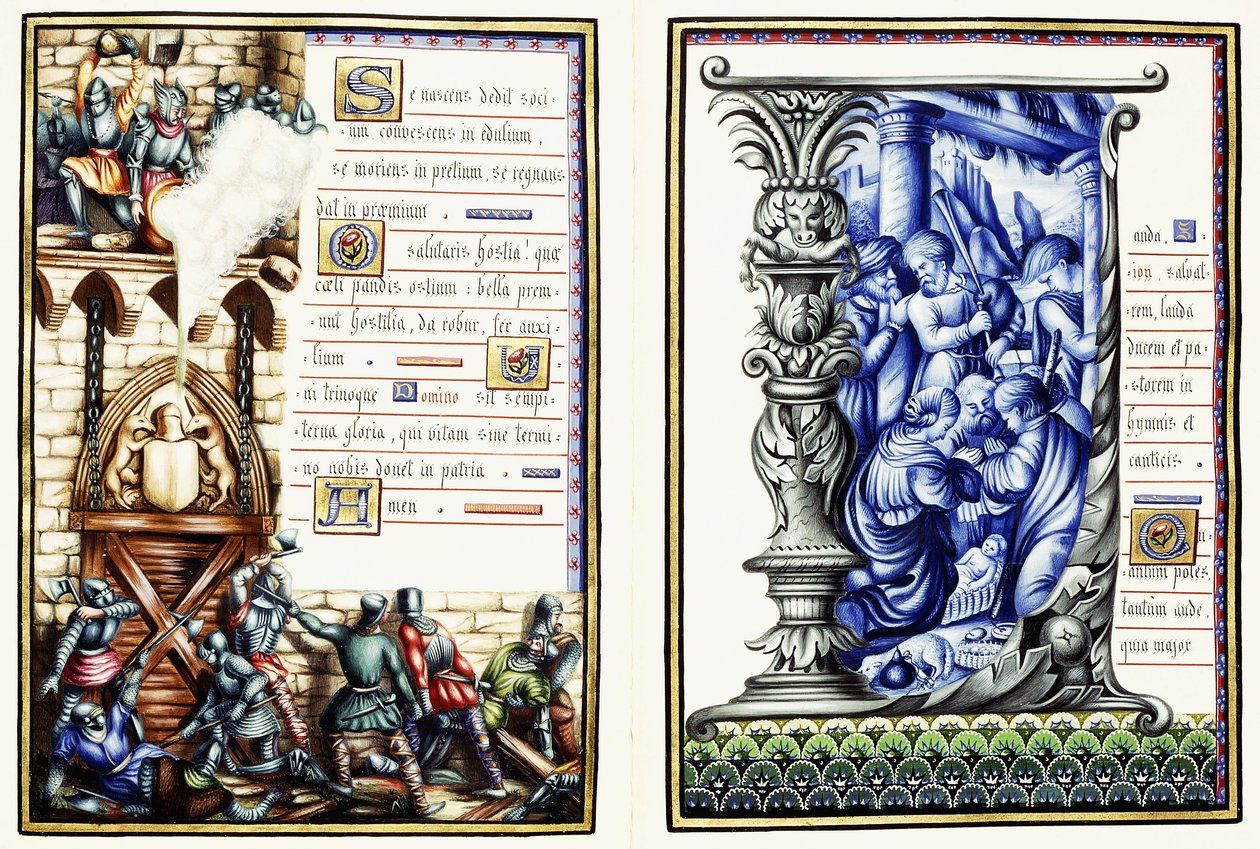 Se nascens dedit soci-
-um, convescens in edulium,
se moriens in pretium, se regnans
dat in præmium .
O salutaris hostia! quæ
cæli pandis ostium : bella prem-
-unt hostilia, da robur, fer auxi-
-lium . U
ni trinoque Domino sit sempi-
-terna gloria, qui vitam sine termi-
-no nobis donet in patria .
Amen .
Lauda, S-
-ion, salvat-
-rem, lauda
ducem et pa-
-storem in
hymnis et
canticis .
Qu-
-antum potes,
tantùm aude,
quia major